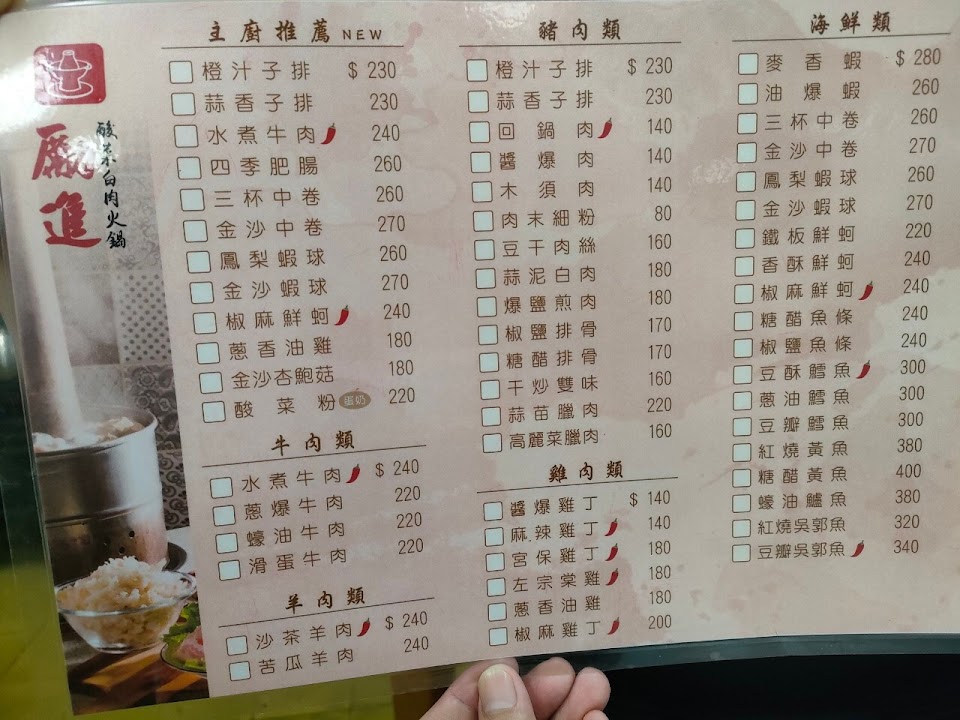 勵進
酸菜白肉火鍋
主廚推薦 NEW
橙汁子排 $ 230
蒜香子排 230
水煮牛肉 240
四季肥腸 260
三杯中卷 260
金沙中卷 270
鳳梨蝦球 260
金沙蝦球 270
椒麻鮮蚵 240
蔥香油雞 180
金沙杏鮑菇 180
酸菜粉 蛋奶 220
牛肉類
水煮牛肉 $ 240
蔥爆牛肉 220
蠔油牛肉 220
滑蛋牛肉 220
羊肉類
沙茶羊肉 $ 240
苦瓜羊肉 240
豬肉類
橙汁子排 $ 230
蒜香子排 230
回鍋肉 140
醬爆肉 140
木須肉 140
肉末細粉 80
豆干肉絲 160
蒜泥白肉 180
爆鹽煎肉 180
椒鹽排骨 170
糖醋排骨 170
干炒雙味 160
蒜苗臘肉 220
高麗菜臘肉 160
雞肉類
醬爆雞丁 $ 140
麻辣雞丁 140
宮保雞丁 180
左宗棠雞 180
蔥香油雞 180
椒麻雞丁 200
海鮮類
麥香蝦 $ 280
油爆蝦 260
三杯中卷 260
金沙中卷 270
鳳梨蝦球 260
金沙蝦球 270
鐵板鮮蚵 220
香酥鮮蚵 240
椒麻鮮蚵 240
糖醋魚條 240
椒鹽魚條 240
豆酥鱈魚 300
蔥油鱈魚 300
豆瓣鱈魚 300
紅燒黃魚 380
糖醋黃魚 400
蠔油鱸魚 380
紅燒吳郭魚 320
豆瓣吳郭魚 340